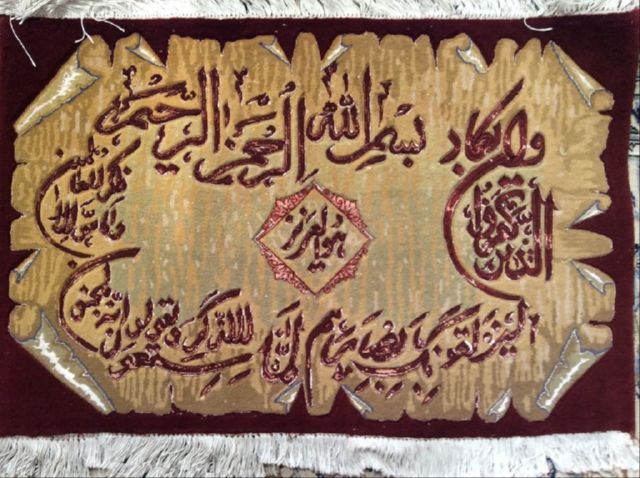 بسم الله الرحمن الرحیم
وان یکاد
الذین کفروا
لیزلقونک بابصارهم لما
سمعوا الذکر و یقولون انه لمجنون
وما هو الا
ذکر للعالمین
هو العزیز